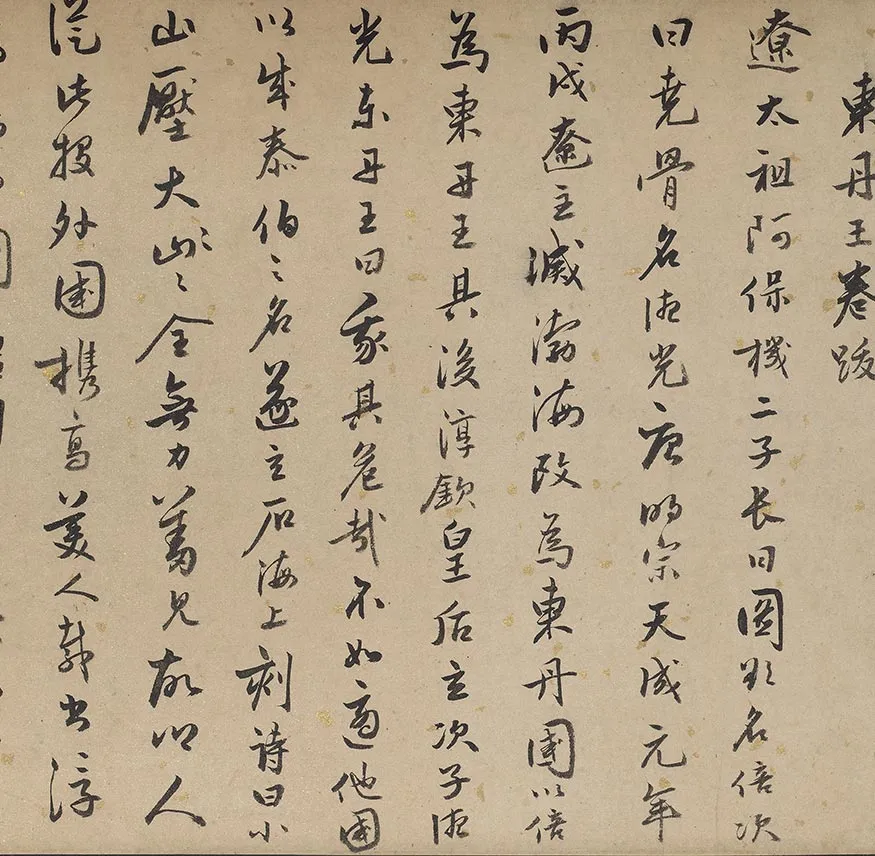 東丹王卷跋
遼太祖阿保機二子長曰圖欲名倍次
曰堯骨名德光唐明宗天成元年
丙戌遼主滅渤海改為東丹國以倍
為東丹王其後淳欽皇后立次子德
光東丹王曰我其危哉不如適他國
以成泰伯之名遂立石海上刻詩曰小
山壓大山〻〻全無力羞見故鄉人
從此投外國携高美人載書浮